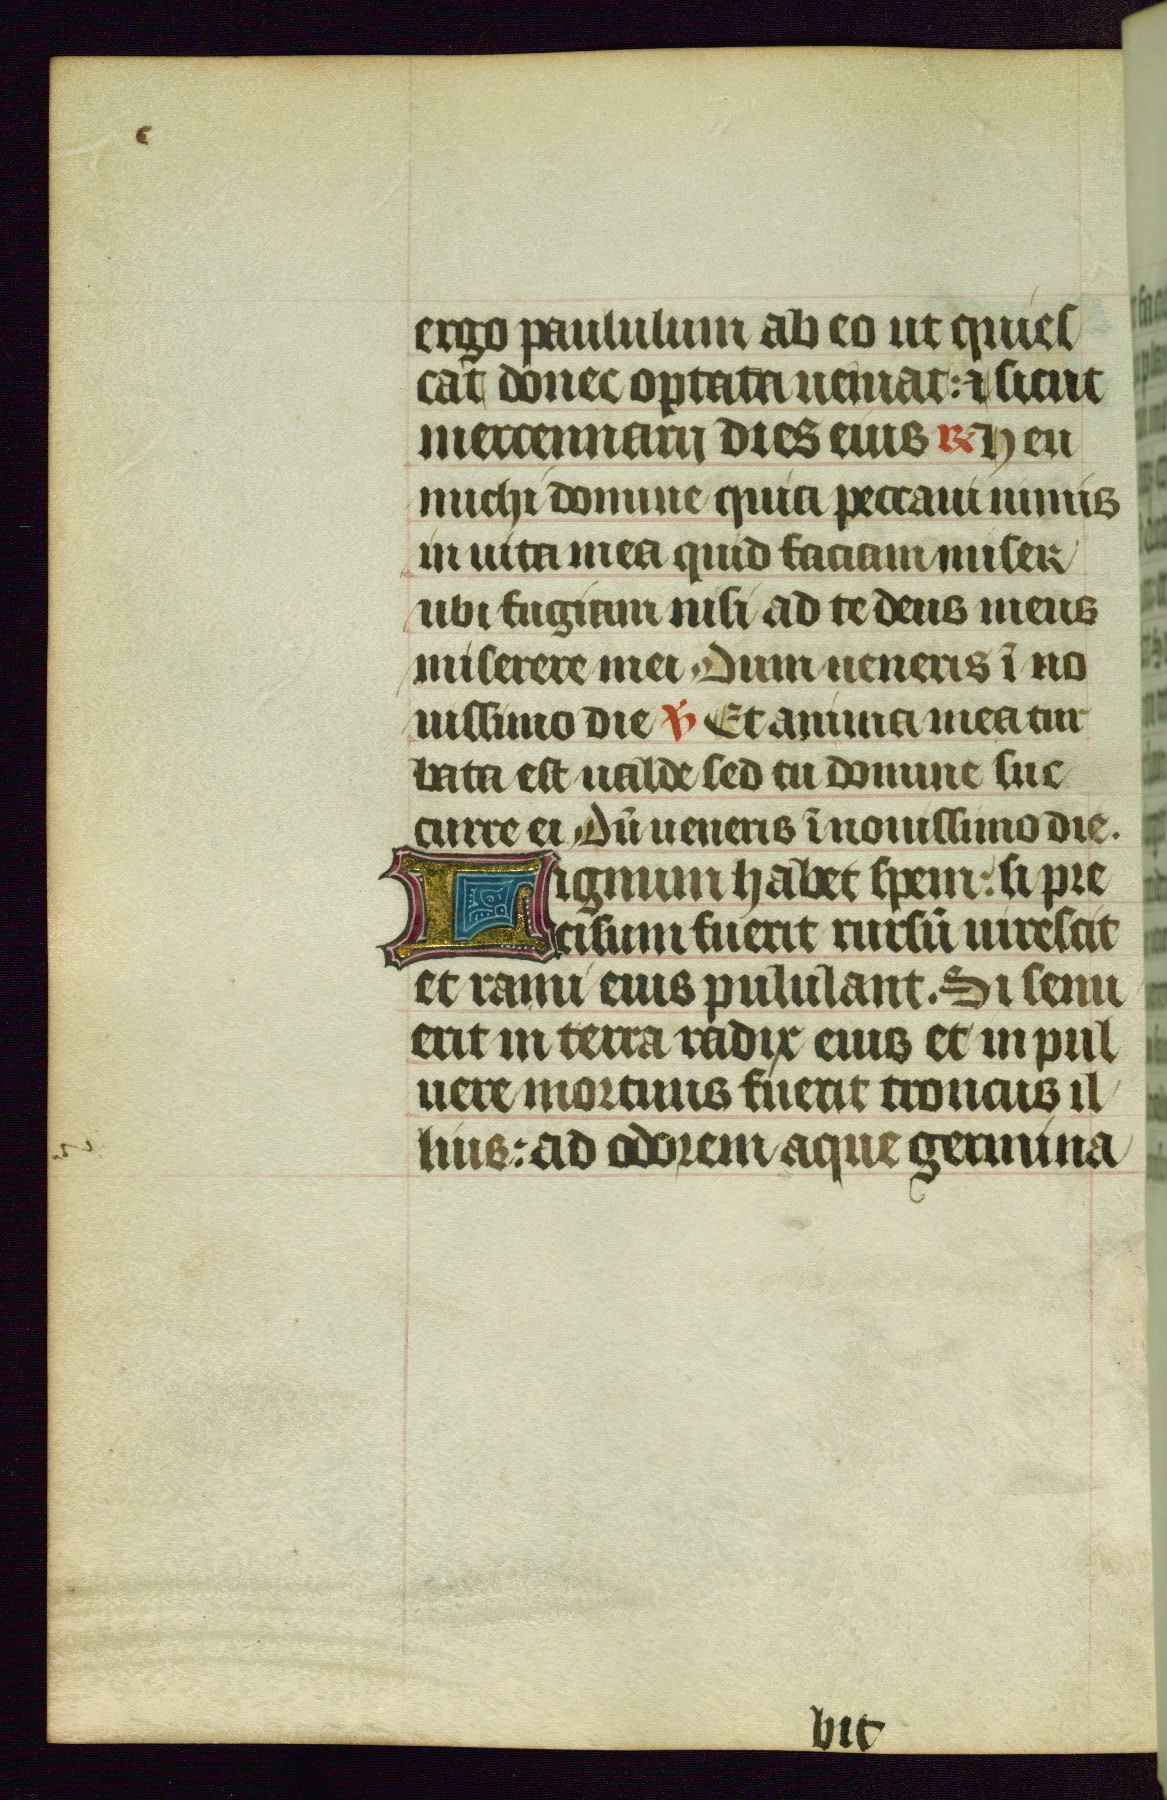 ergo paululum ab eo ut quies
cat donec optata ueniat: ⁊ sicut
mercennarij dies eius ℟ Heu
michi domine quia peccaui nimis
in uita mea quid faciam miser
ubi fugiam nisi ad te deus meus
miserere mei Dum ueneris ī no
uissimo die ℣ Et anima mea tur
bata est ualde sed tu domine suc
curre ei Dū ueneris ī nouissimo die.
Lignum habet spem: si pre
cisum fuerit rursū uirescit
et rami eius pululant. Si senu
erit in terra radix eius et in pul
uere mortuus fuerit troncus il
lius: ad odorem aque germina
bit